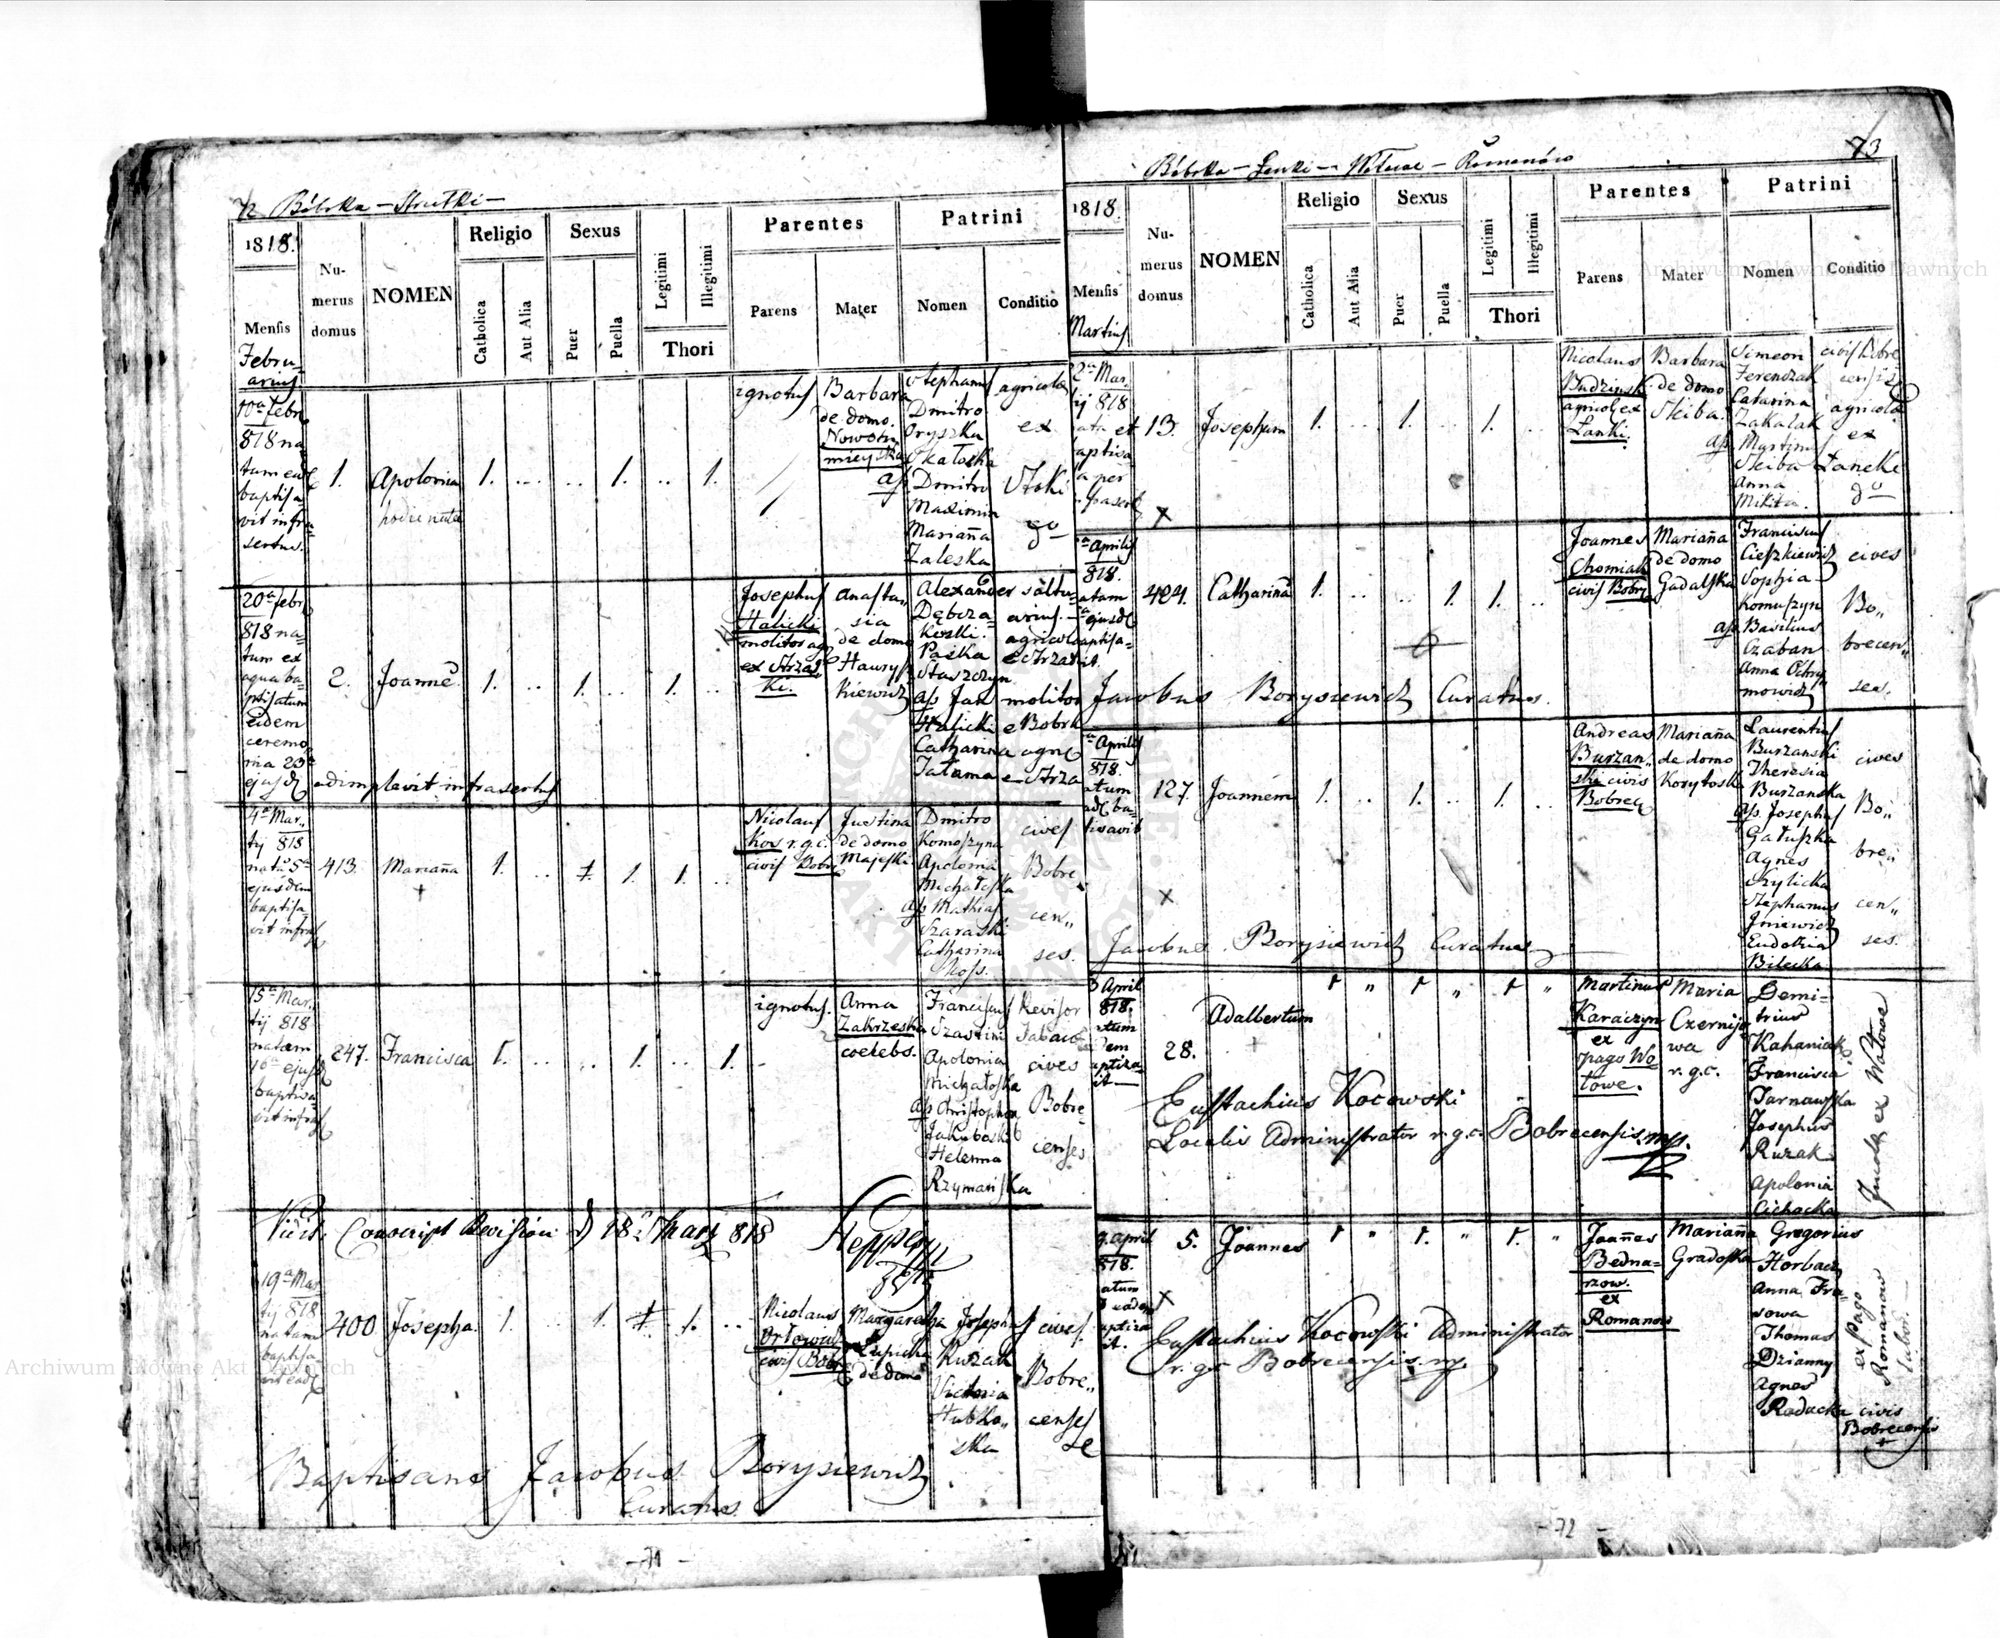 72 Bóbrka - Strułki -
1818.
Numerus domus
NOMEN
Religio
Sexus
Legitimi
Illegitimi
Parentes
Patrini
Mensis
Catholica
Aut Alia
Puer
Puella
Thori
Parens
Mater
Nomen
Conditio
Febru-
arius
10a febr
818 na
tum ead
baptisa
vit infra
sertus.
1.
Apolonia
hodie nata
1.
1.
1.
ignotus
Barbara
de domo.
Stephanus
Dmitro
Oryszka
Dmitro
Maximm
Mariaña
Zaleska
agricolae
ex
Stoki
20a febr
818 na-
tum ex
aqua ba-
ptisatum
eidem
ceremo
nia 23a
ejusd adimplevit infrasertus
2.
Joanne
1.
1.
1.
Josephus
Halicki
molitor
ex Strzał
ki.
Anasta-
sia
de domo
Hawry
kiewicz
Alexander
Paśka
Staszczyn
ass Jan
Halicki
Catharina
Tatama
saltu-
arius.
agricola
molitor
e Bobrk
4a Mar.
tij 818
natu 5a
ejusdem
baptisa
vit infras
413.
Mariaña
1.
1.
1.
Nicolaus
Kos r.g.c.
civis Bobr
Justina
de domo
Majeski
Dmitro
Komoszyna
Apolonia
Michałoska
ass Mathias
Szaraski
Catharina
Koss.
cives
Bobre
cen„
ses.
15a Mar.
tij 818
natam
16a ejusd
baptisa
vit infras
247.
Francisca
1.
1.
1.
ignotus.
Anna
Zakrzeska
coelebs.
Franciscus
Szastin
Apolonia
Michałoska
ass Christophor
Jakuboski
Helenna
Rzymariska
Revisor
Tabac
cives
Bobre
censes
Vidit. Conscript Revision d 18. Marz 818
19a Mar
tij 818
natam
baptisa
vit ead
400
Josepha.
1.
1.
1.
Nicolaus
civis Bobr
Margaretha
Łupicka
de domo
Josephus
Ruzak
Victoria
Hubko„
ska
cives
Bobre„
censes
Baptisans Jacobus Borysiewicz
Curatus.
- 71 -
73
Bóbrka - Łanki - Wołowe - Romanów
1818.
Numerus domus
NOMEN
Religio
Sexus
Legitimi
Illegitimi
Parentes
Patrini
Mensis
Catholica
Aut Alia
Puer
Puella
Thori
Parens
Mater
Nomen
Conditio
Martius
2a Mar.
tij 818
ata et
aptisa
a per
frasert
13.
Josephum
1.
1.
1.
Nicolaus
Budzinsk
agricol ex
Lanki.
Barbara
de domo
Skiba.
Simeon
Ferenczak
Catarina
Zakalak
ass Martinus
Skiba
Anna
Mikta.
civis Bobre
censis
agricola
ex
Laneki
Aprilis
818.
atam
ejusd
aptisa-
it.
424.
Catharina
1.
1.
1.
Joannes
Chomiak
civis Bobr
Mariaña
de domo
Gadalska
Franciscus
Cieszkiewicz
Sophia
Komuszyn
ass Basilius
Czaban
Anna Ochry
mowicz
cives
Bo„
brecen„
ses.
Jacobus Borysiewicz Curatus.
Aprilis
818.
atum
ad ba-
tisavit
127.
Joannem
1.
1.
1.
Andreas
Burzan„
ski civis
Bobrec
Mariaña
de domo
Koryłoska
Laurentius
Burzanski
Theresia
Burzanska
ass. Josephus
Gałuszka
Agnes
Kylicka
Stephanus
Jniewicz
Eudokia
Bilecka
cives
Bo„
bre„
cen„
ses.
Jacobus Borysiewicz Curatus
3 April
818.
atum
dem
aptiza-
it—
28.
Adalbertum
1
"
1
"
1
"
Martinus
Karaczyn
ex
pago Wo
łowe.
Maria
Czernijo
wa
r.g.c.
Demi-
trius
Kahaniak
Francisca
Tarnawska
Josephus
Ruzak
Apolonia
Cichacka
Eustachius Kocowski
Localis Administrator r.g.c. Bobrecensis mp.
9. April
818.
atum
eadem
aptiza
it.
5.
Joannes
1
"
1.
"
1.
"
Joañes
Bedna-
rzow.
ex
Romanow
Mariaña
Gradoska
Gregorius
Horbacz
Anna Fra-
sowa
Thomas
Dzianny
Agnes
Raducka civis
Bobrecensis
ex Pago
Romanow
Eustachius Kocowski Administrator
r.g.c. Bobrecensis mp.
- 72 -
Archiwum Główne Akt Dawnych
Archiwum Główne Akt Dawnych